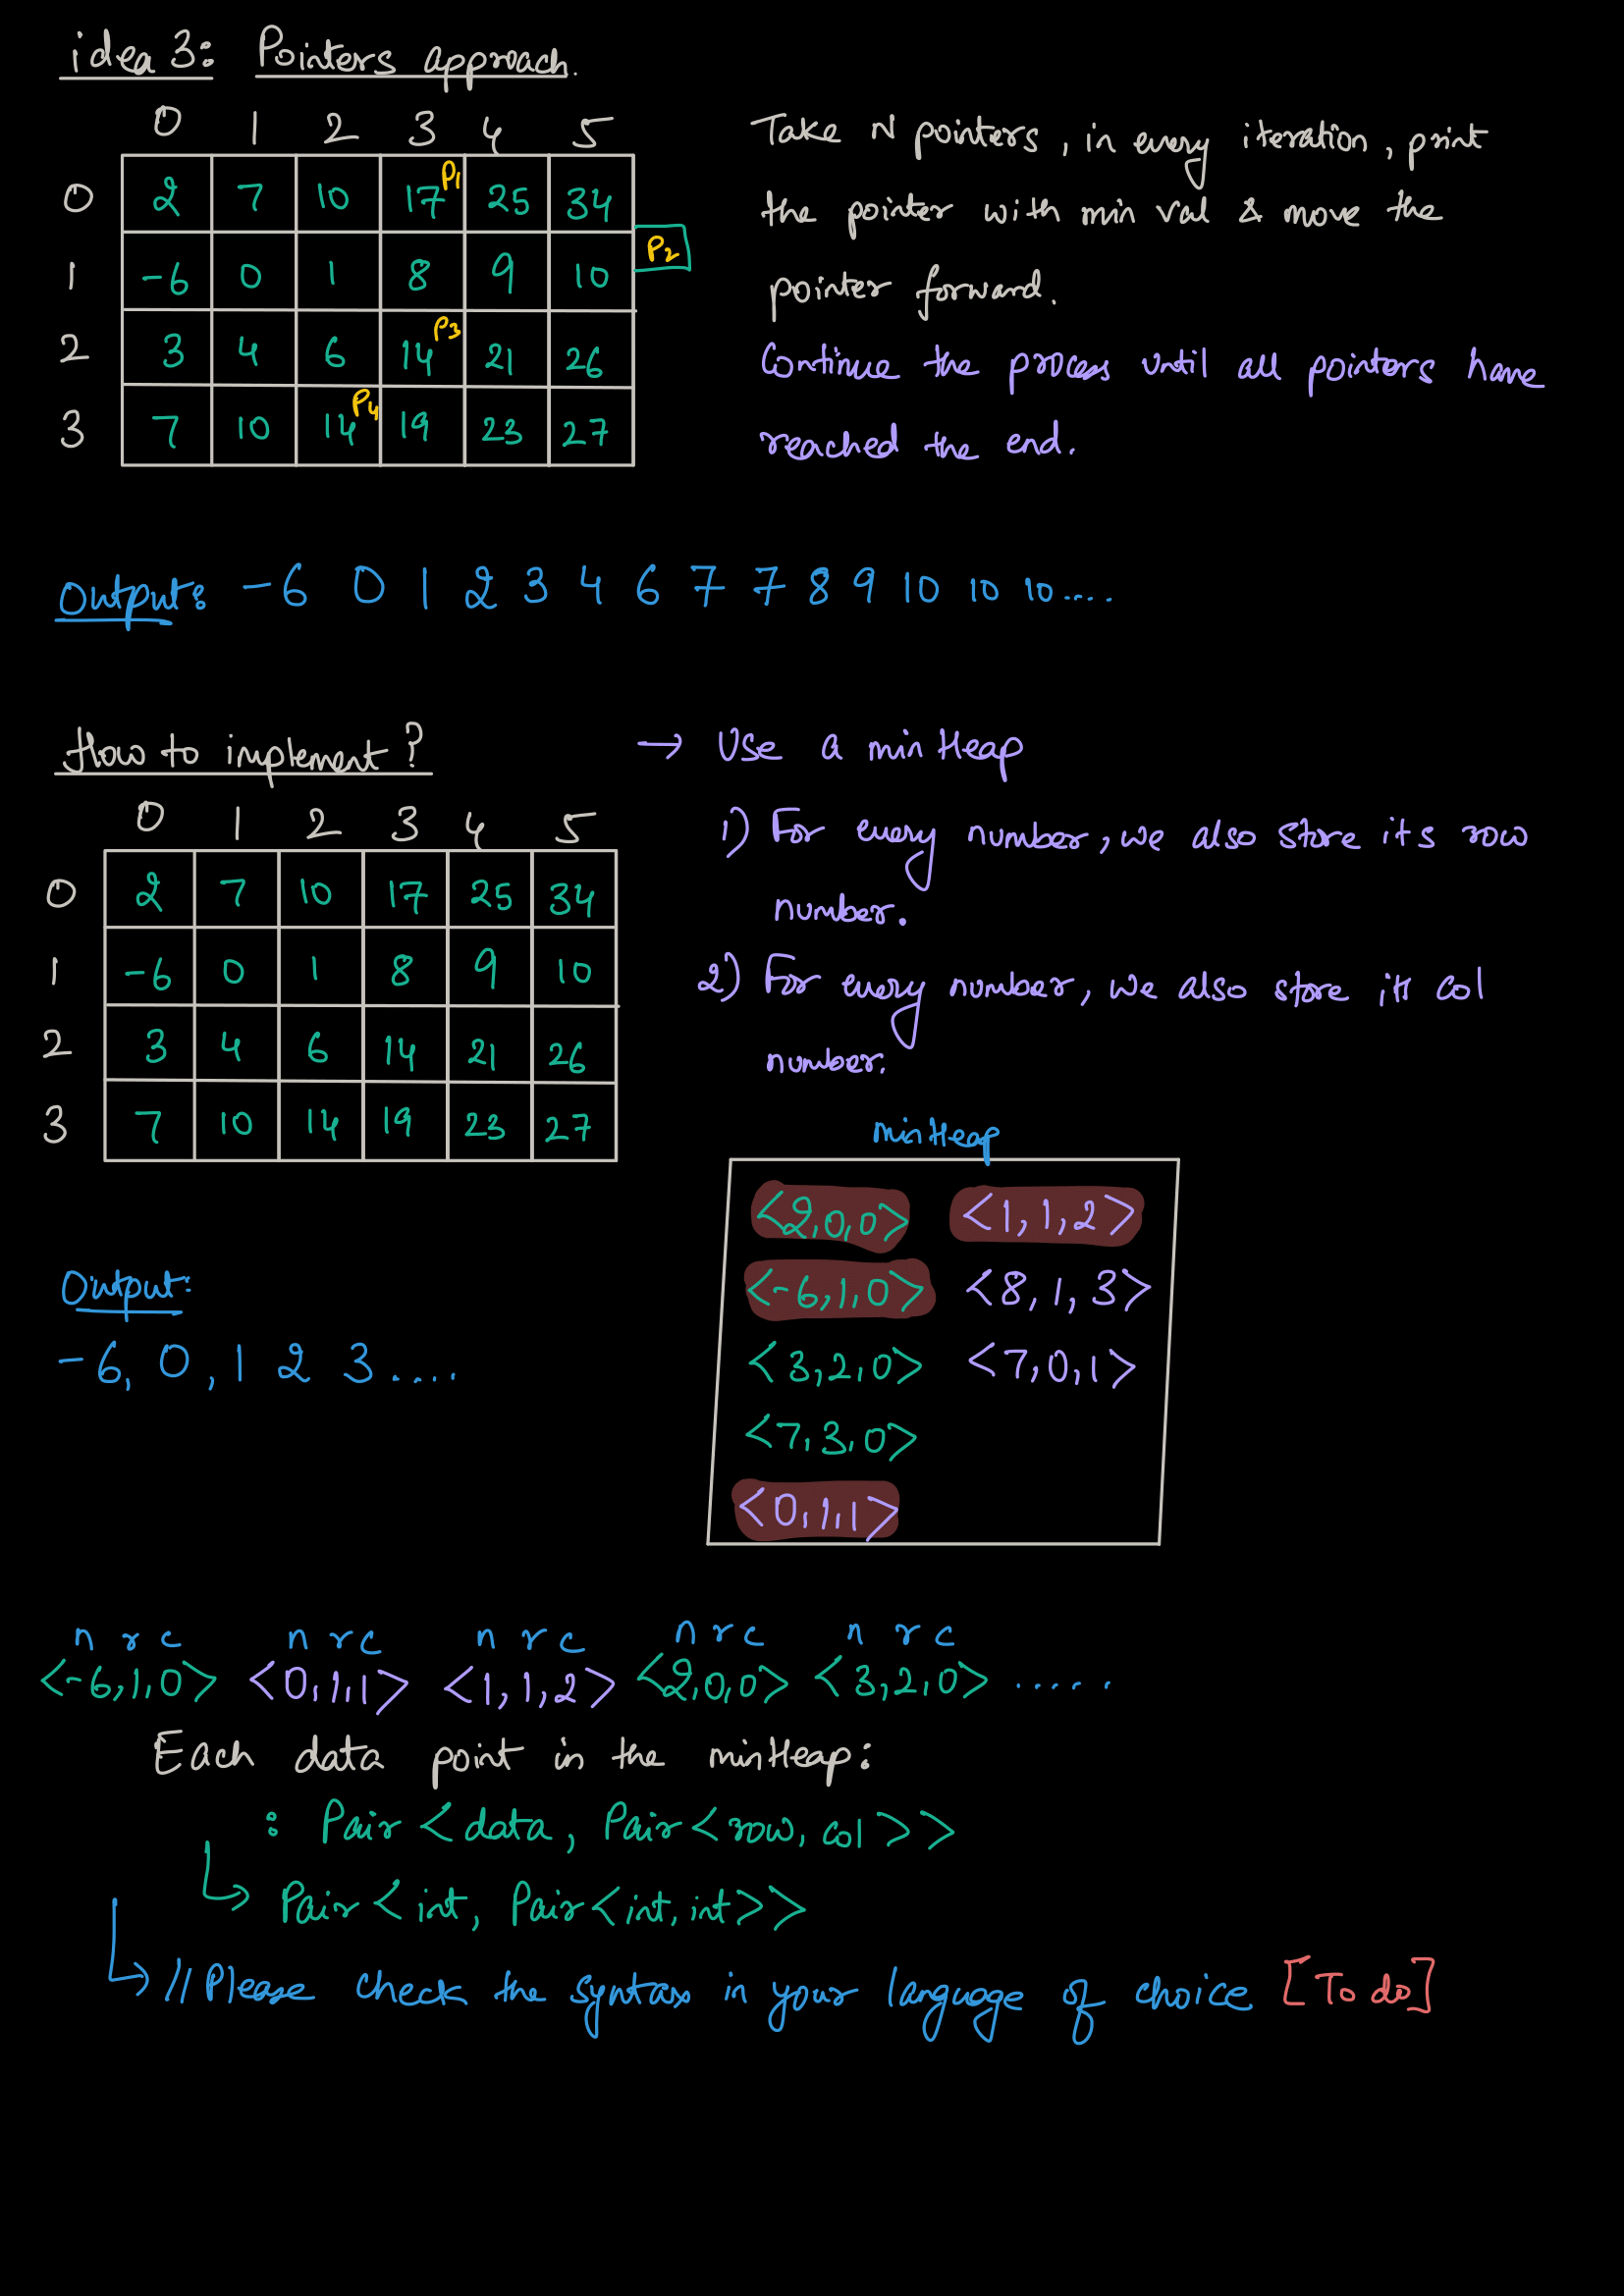 idea 3: Pointers approach.
0 1 2 3 4 5
0 2 7 10 17 P1 25 34
1 -6 0 1 8 9 10 P2
2 3 4 6 14 P3 21 26
3 7 10 14 P4 19 23 27
Take N pointers, in every iteration, print
the pointer with min val & move the
pointer forward.
Continue the process until all pointers have
reached the end.
Output: -6 0 1 2 3 4 6 7 7 8 9 10 10 10....
How to implement?
0 1 2 3 4 5
0 2 7 10 17 25 34
1 -6 0 1 8 9 10
2 3 4 6 14 21 26
3 7 10 14 19 23 27
→ Use a minHeap
1) For every number, we also store its row
number.
2) For every number, we also store its col
number.
minHeap
<2,0,0> <1,1,2>
<-6,1,0> <8,1,3>
<3,2,0> <7,0,1>
<7,3,0>
<0,1,1>
Output:
-6, 0, 1 2 3....
n r c n r c n r c n r c n r c
<-6,1,0> <0,1,1> <1,1,2> <2,0,0> <3,2,0> .....
Each data point in the minHeap:
: Pair <data, Pair<row, col>>
Pair <int, Pair<int, int>>
// Please check the syntax in your language of choice [To do]